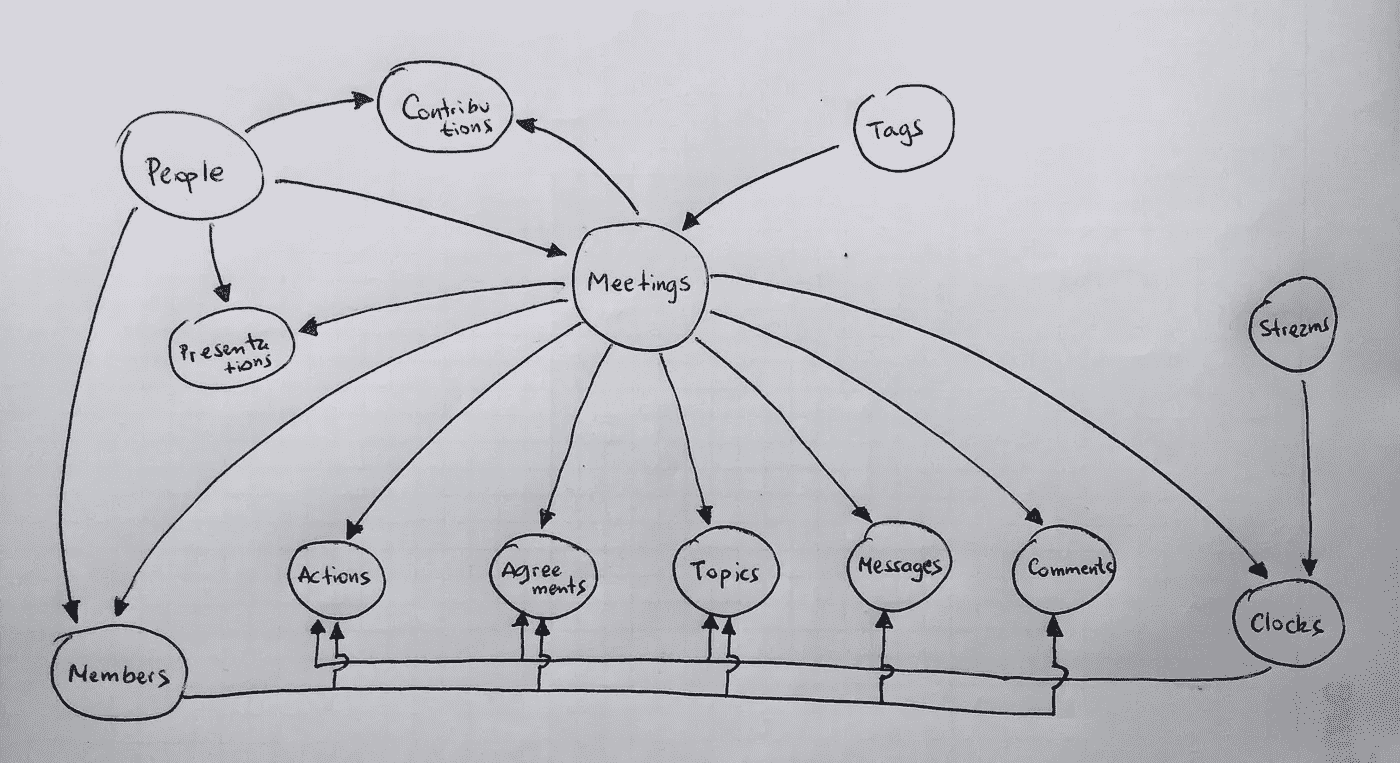 Contribu
tions
Tags
People
Meetings
Streams
Presenta
tions
Actions
Agree
ments
Topics
Messages
Comments
Clocks
Members